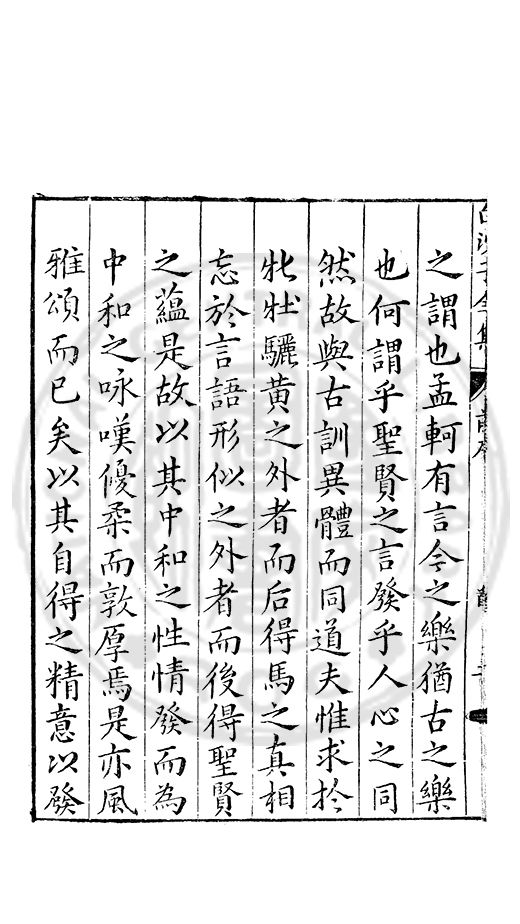 之謂也孟軻有言今之樂猶古之樂
也何謂乎聖賢之言發乎人心之同
然故與古訓異體而同道夫惟求於
牝牡驪黄之外者而后得馬之真相
忘於言語形似之外者而後得聖賢
之蘊是故以其中和之性情發而為
中和之咏嘆優柔而敦厚焉是亦風
雅頌而已矣以其自得之精意以發